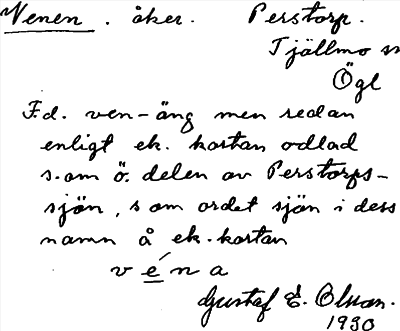 Venen. åker. Perstorp.
Tjällmo sn
Ögl
F.d. ven-äng men redan
enligt ek. kartan odlad
s.om ö. delen av Perstorps-
sjön, s om ordet sjön i dess
namn å ek. kartan
véna
Gustaf E. Olsson.
1930